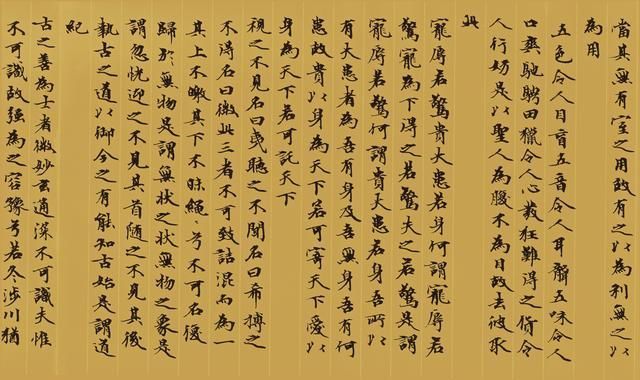 當其無有室之用故有之以為利無之以
為用
五色令人目盲五音令人耳聾五味令人
口爽馳騁田獵令人心發狂難得之貨令
人行妨是以聖人為腹不為目故去彼取
此
寵辱若驚貴大患若身何謂寵辱若
驚寵為下得之若驚失之若驚是謂
寵辱若驚何謂貴大患若身吾所以
有大患者為吾有身及吾無身吾有何
患故貴以身為天下若可寄天下愛以
身為天下若可託天下
視之不見名曰夷聽之不聞名曰希搏之
不得名曰微此三者不可致詰混而為一
其上不皦其下不昧繩〻兮不可名復
歸於無物是謂無狀之狀無物之象是
謂忽恍迎之不見其首隨之不見其後
執古之道以御今之有能知古始是謂道
紀
古之善為士者微妙玄通深不可識夫惟
不可識故強為之容豫兮若冬涉川猶